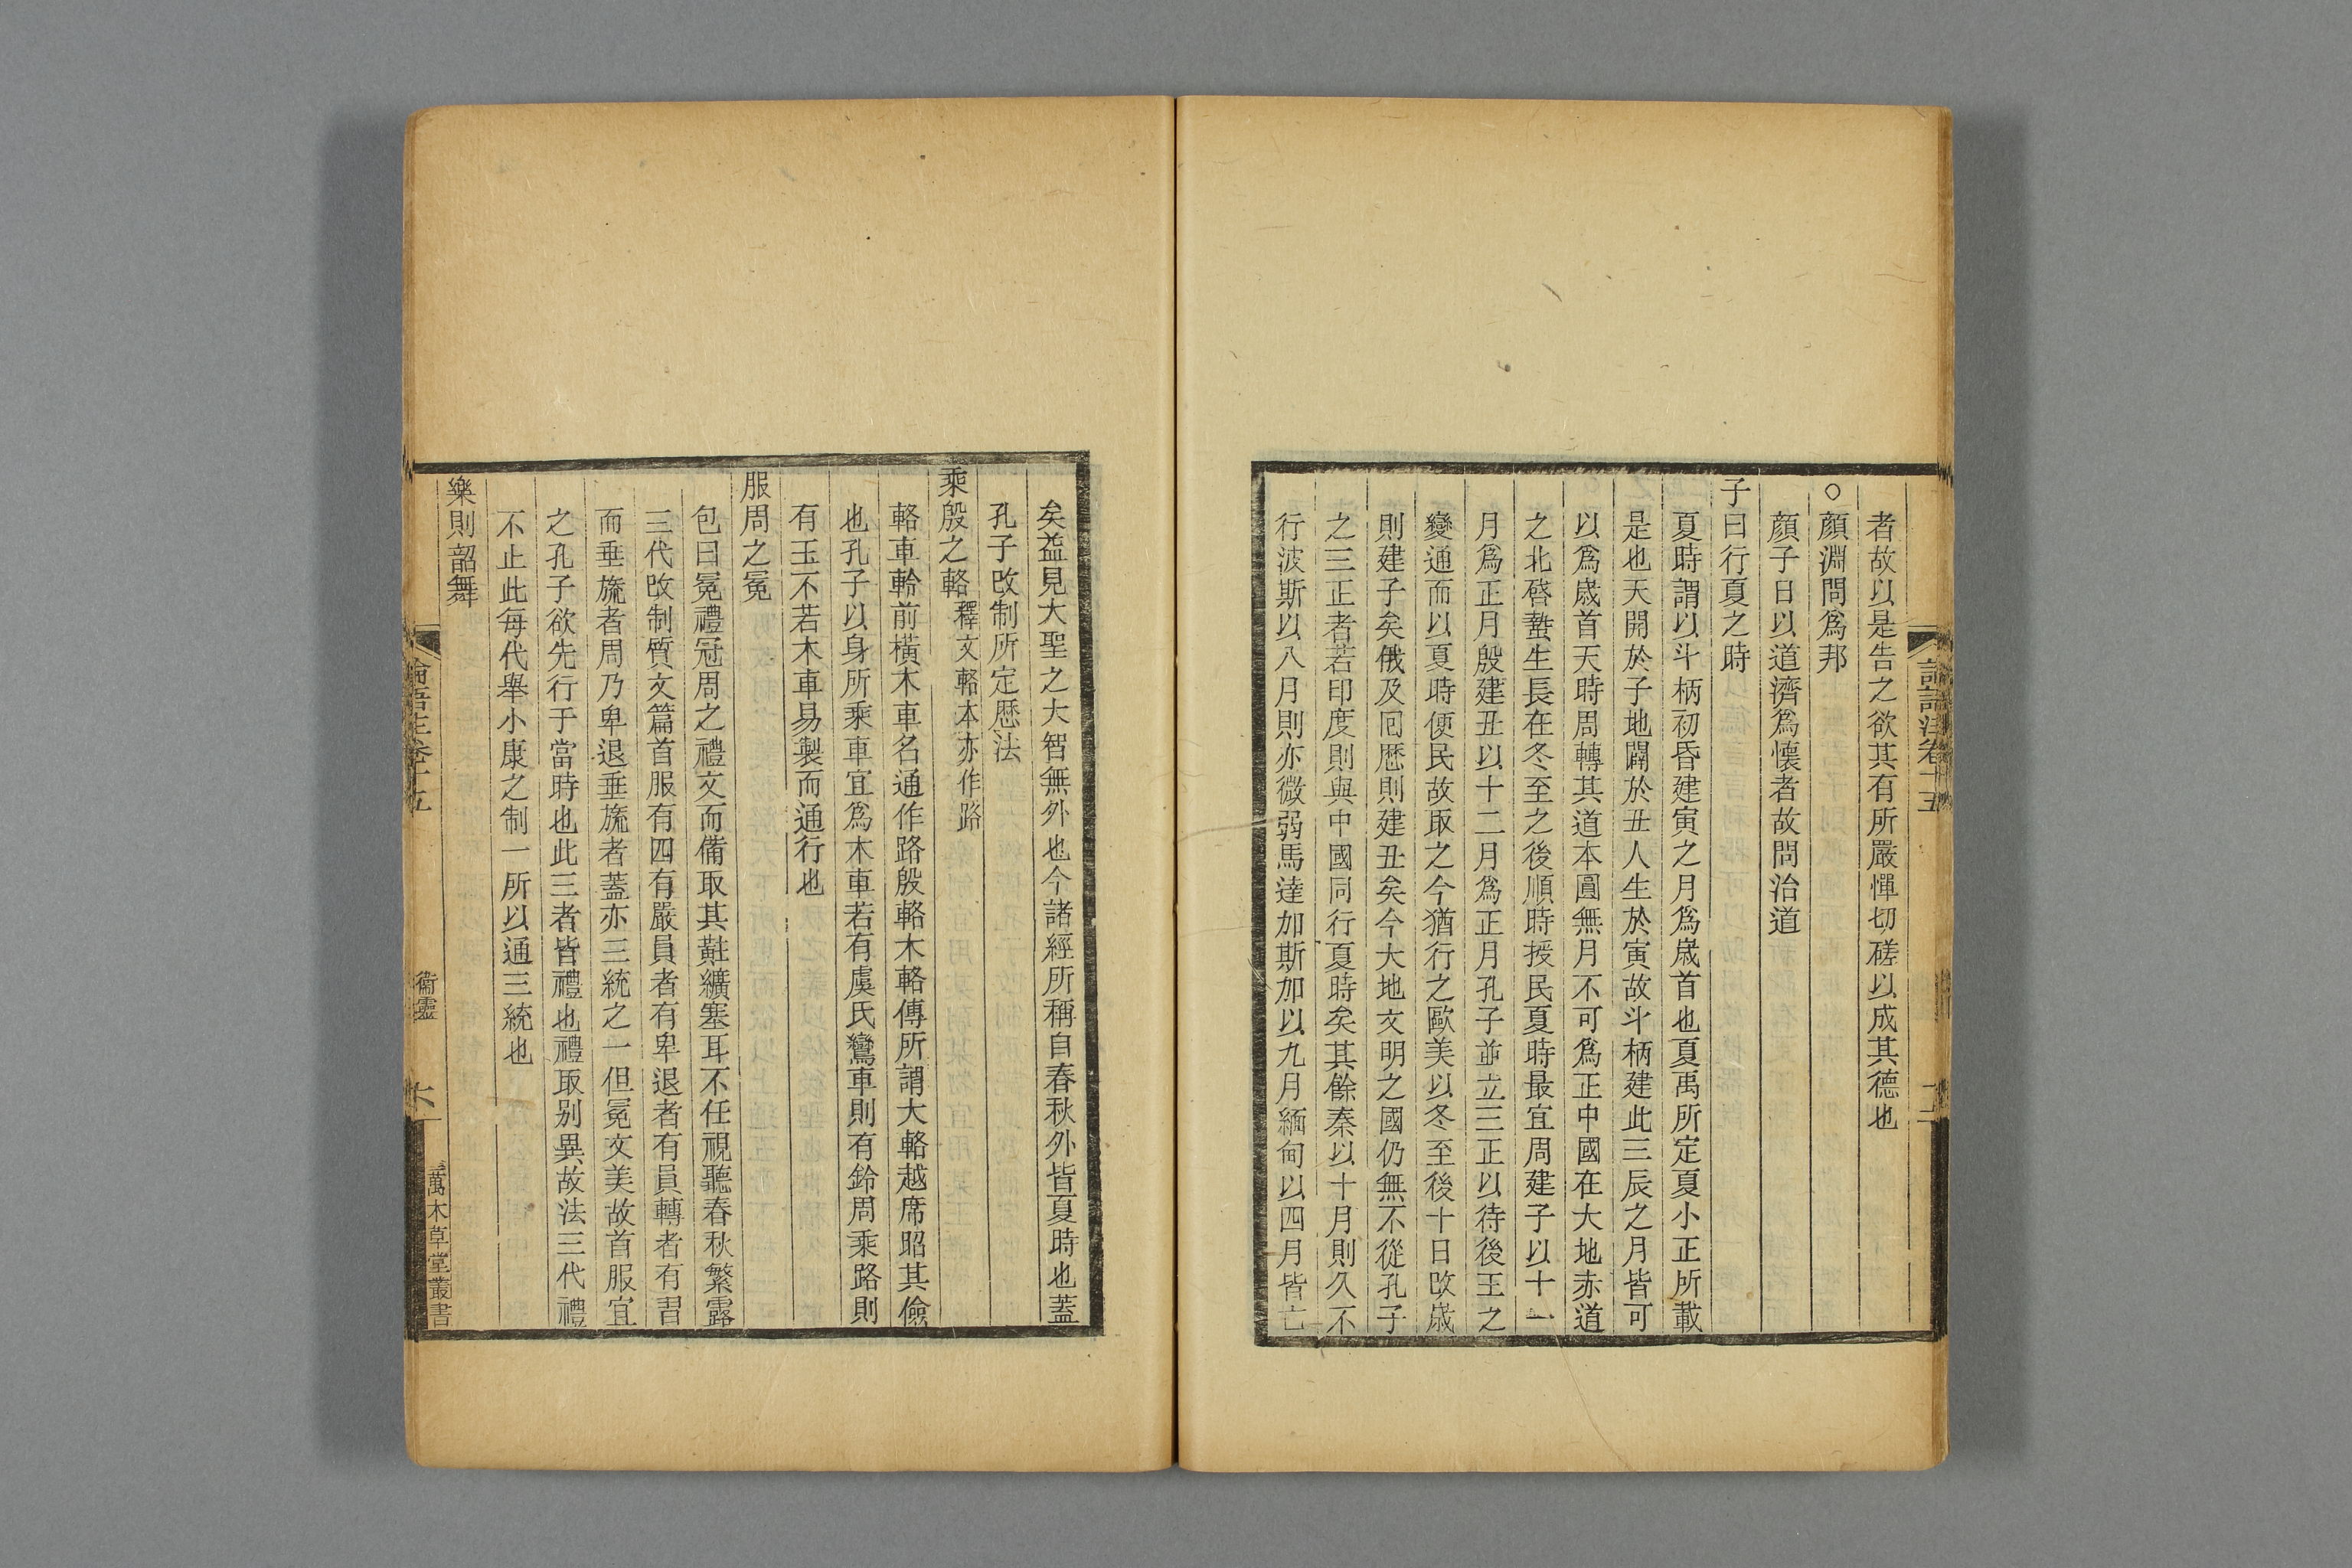 者故以是告之欲其有所嚴憚切磋以成其德也
○顏淵問爲邦
顏子日以道濟爲懷者故問治道
子曰行夏之時
夏時謂以斗柄初昏建寅之月爲歲首也夏禹所定夏小正所載
是也天開於子地闢於丑人生於寅故斗柄建此三辰之月皆可
以爲歲首天時周轉其道本圓無月不可爲正中國在大地赤道
之北啓蟄生長在冬至之後順時授民夏時最宜周建子以十一
月爲正月殷建丑以十二月爲正月孔子並立三正以待後王之
變通而以夏時便民故取之今猶行之歐美以冬至後十日改歲
則建子矣俄及囘厯則建丑矣今大地文明之國仍無不從孔子
之三正者若印度則與中國同行夏時矣其餘秦以十月則久不
行波斯以八月則亦微弱馬達加斯加以九月緬甸以四月皆亡
矣益見大聖之大智無外也今諸經所稱自春秋外皆夏時也蓋
孔子改制所定厯法
乘殷之輅釋文輅本亦作路
輅車軨前橫木車名通作路殷輅木輅傳所謂大輅越席昭其儉
也孔子以身所乘車宜爲木車若有虞氏鸞車則有鈴周乘路則
有玉不若木車易製而通行也
服周之冕
包曰冕禮冠周之禮文而備取其黈纊塞耳不任視聽春秋繁露
三代改制質文篇首服有四有嚴員者有卑退者有員轉者有習
而垂旒者周乃卑退垂旒者蓋亦三統之一但冕文美故首服宜
之孔子欲先行于當時也此三者皆禮也禮取别異故法三代禮
不止此每代舉小康之制一所以通三統也
樂則韶舞
論語注卷十五
衞靈
六
萬木草堂叢書